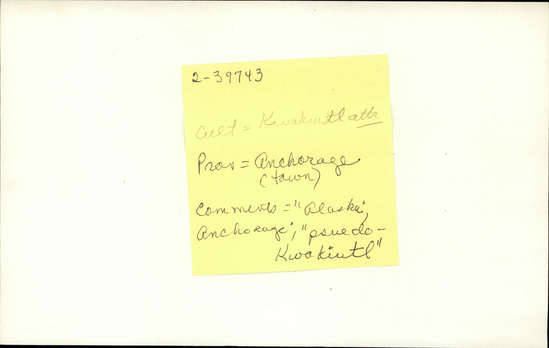 2-39743
Cult = Kwakiutl attr
Prov = Anchorage
(town)
Comments = "Alaska;
Anchorage"; "psuedo-
Kwakiutl"